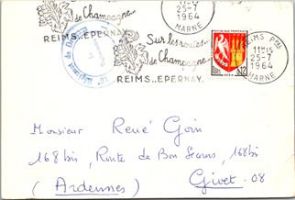 de Champagne
REIMS..EPERNAY.
25-7
1964
MARNE
Sur les routes
de Champagne
REIMS..EPERNAY.
11H15
25-7
1964
MARNE
Monsieur René Goin
168 bis, Route de Bon Secours, 168 bis
(Ardennes) Givet-08